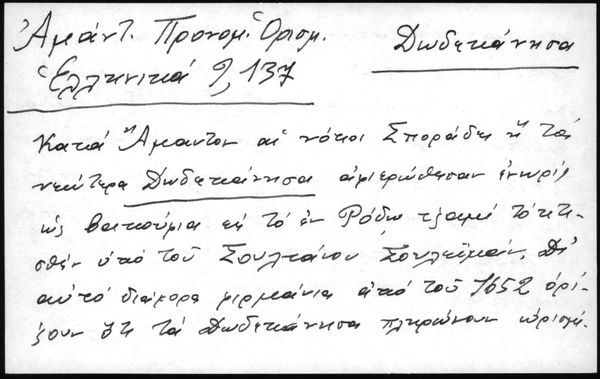 Ἀμάντ. Προνομ. Ὁρισμ. Δωδεκάνησα
Ἑλληνικά 9, 137
Κατά Ἄμαντον αἱ νότιοι Σποράδες ἤ τά
νεώτερα Δωδεκάνησα ἀφιερώθησαν ἐνωρίς
ὡς βακούφια εἰς τό ἐν Ῥόδῳ τζαμί τό κτι-
σθέν ὑπό τοῦ Σουλτάνου Σουλεϊμάν. Δι'
αὐτό διάφορα φιρμάνια ἀπό τοῦ 1652 ὁρί-
ζουν ὅτι τά Δωδεκάνησα πληρώνουν ὡρισμέ-